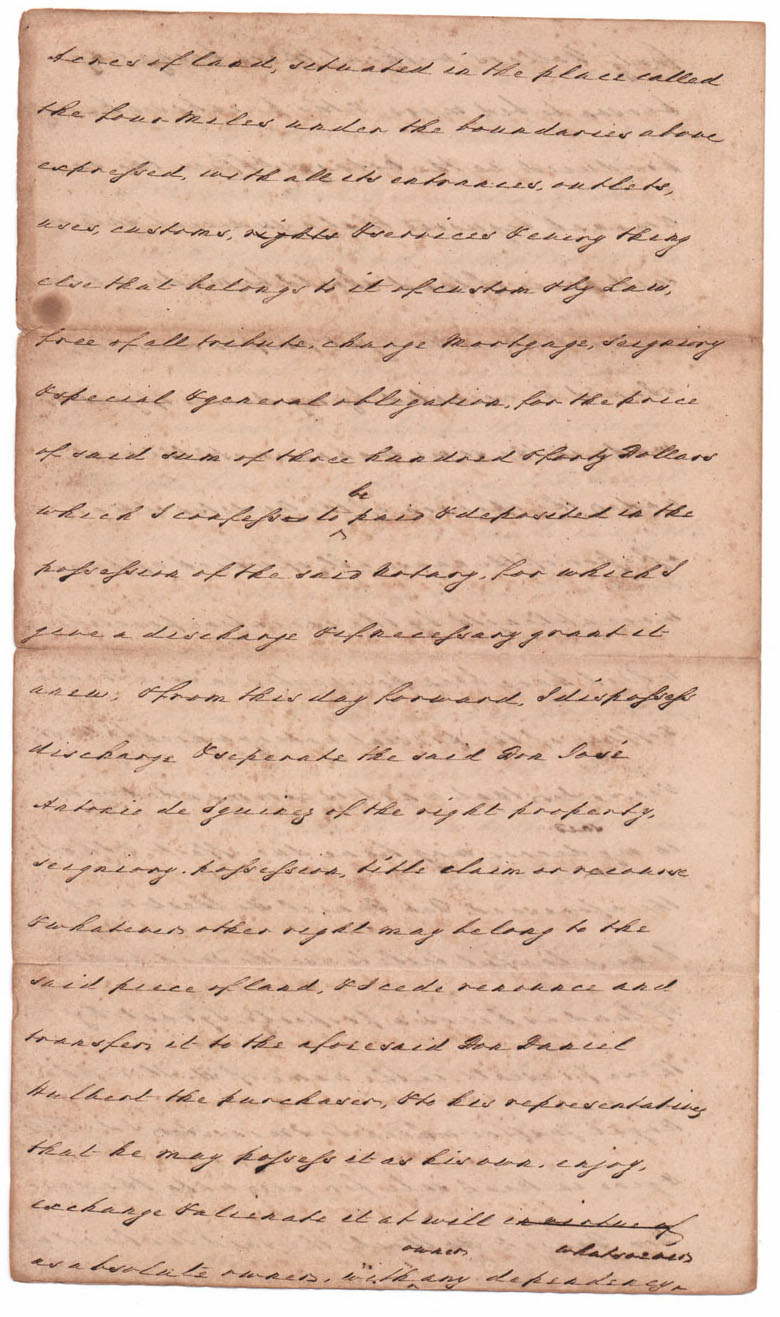 Acres of land, situated in the place called
the four Miles under the boundaries above
expressed, with all its entrances, outlets,
uses, customs, rights & services & every thing
else that belongs to it of custom & by Law,
free of all tribute, charge Mortgage, seigniory
& special & general obligation, for the price
of said sum of three hundred & forty Dollars
be
which I confess to paid & deposited in the
possession of the said Notary, for which I
give a discharge & if necessary grant it
anew; & from this day forward, I dispossess
discharge & seperate the said Don José
Antonio de Yguinez of the right property,
said
seigniory. possession, title claim or recourse
& whatever other right may belong to the
said piece of land, & I cede renounce and
transfer it to the aforesaid Don Daniel
Hulbert the purchaser, & to his representatives
that he may possess it as his own. enjoy,
exchange & alienate it at will in virtue of
owner whatsoever
as absolute owner, with any dependency